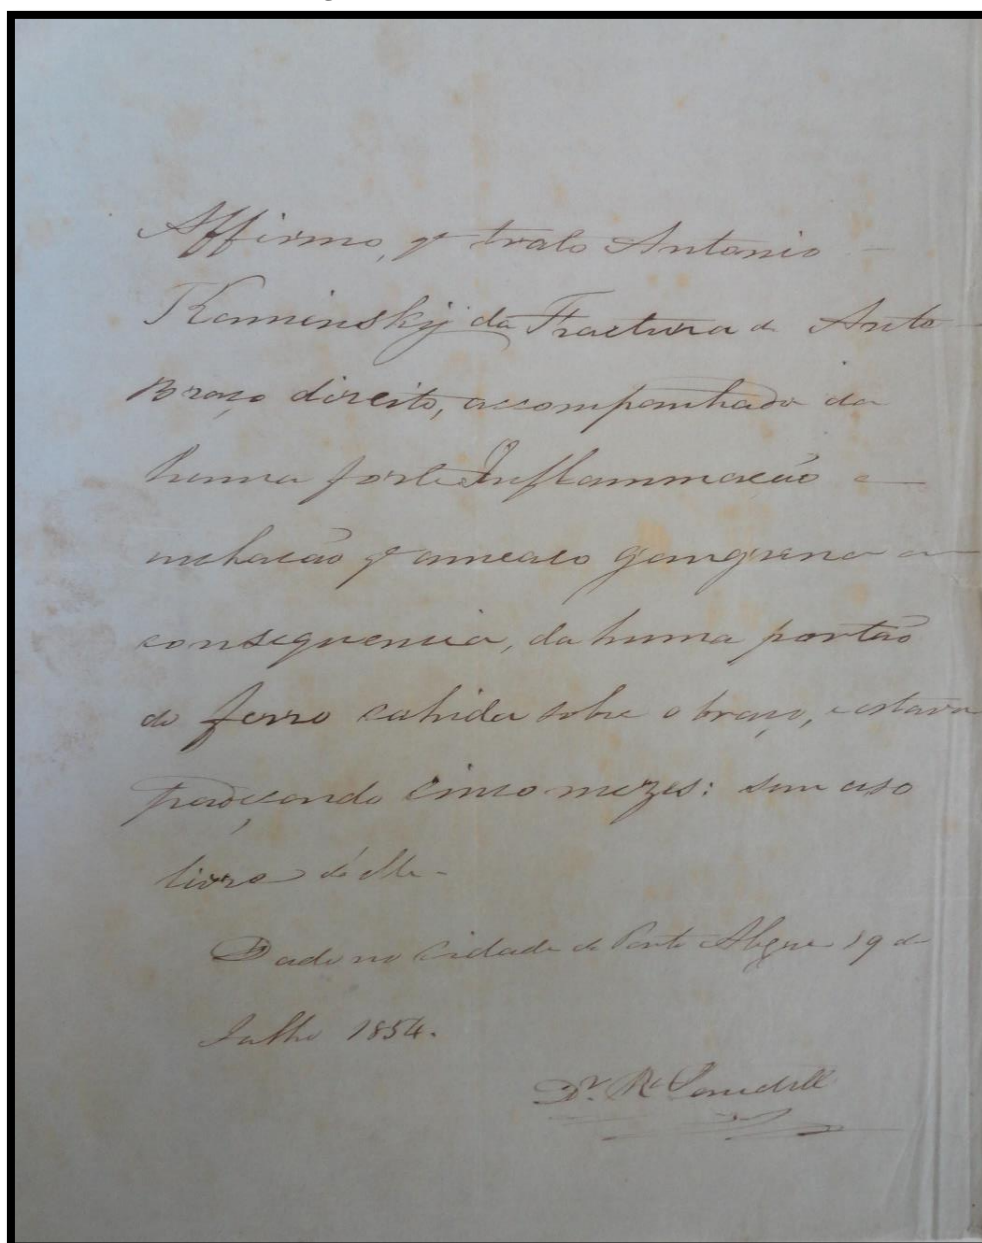 Affirmo, q̃ trato Antonio
Kaminskÿ da Fractura de Ante
Braço direito, accompanhado da
huma forte Inflammacão e
inchacão q̃ ameaco gangrena em
consequencia, da huma portão
de ferro cahida sobre o braço, e estava
cinco mezes: sem uso
livre de elle -
Dado no Cidade de Porto Alegre 19 de
Julho 1854.
D.r R.